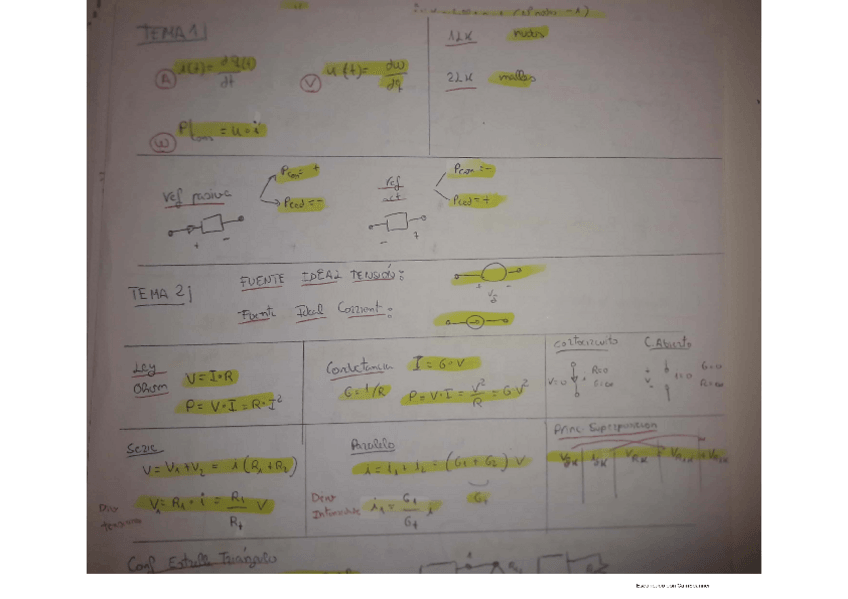 TEMA 1
i(t) = dq(t)/dt
A
u(t) = dw/dq
V
W
P = u · i
1LK nudos
2LK mallas
ref pasiva
Pcon = +
Pced = -
+ -
ref act
Pcon = -
Pced = +
- +
TEMA 2
FUENTE IDEAL TENSIÓN:
+ -
Fuente Ideal Corrient:
Ley Ohm
V = I·R
P = V·I = R·I²
Conductancia I = G·V
G = 1/R
P = V·I = V²/R = G·V²
Cortocircuito
V=0
R=0
C Abierto
i=0
G=0
R=∞
Serie
V = V1 + V2 = i (R1 + R2)
Div tensión
V1 = R1 · i = R1/Rt V
Paralelo
i = i1 + i2 = (G1 + G2) V
Gt
Divor Intensidad
i1 = G1/Gt i
Princ. Superposición
Conf Estrella Triángulo